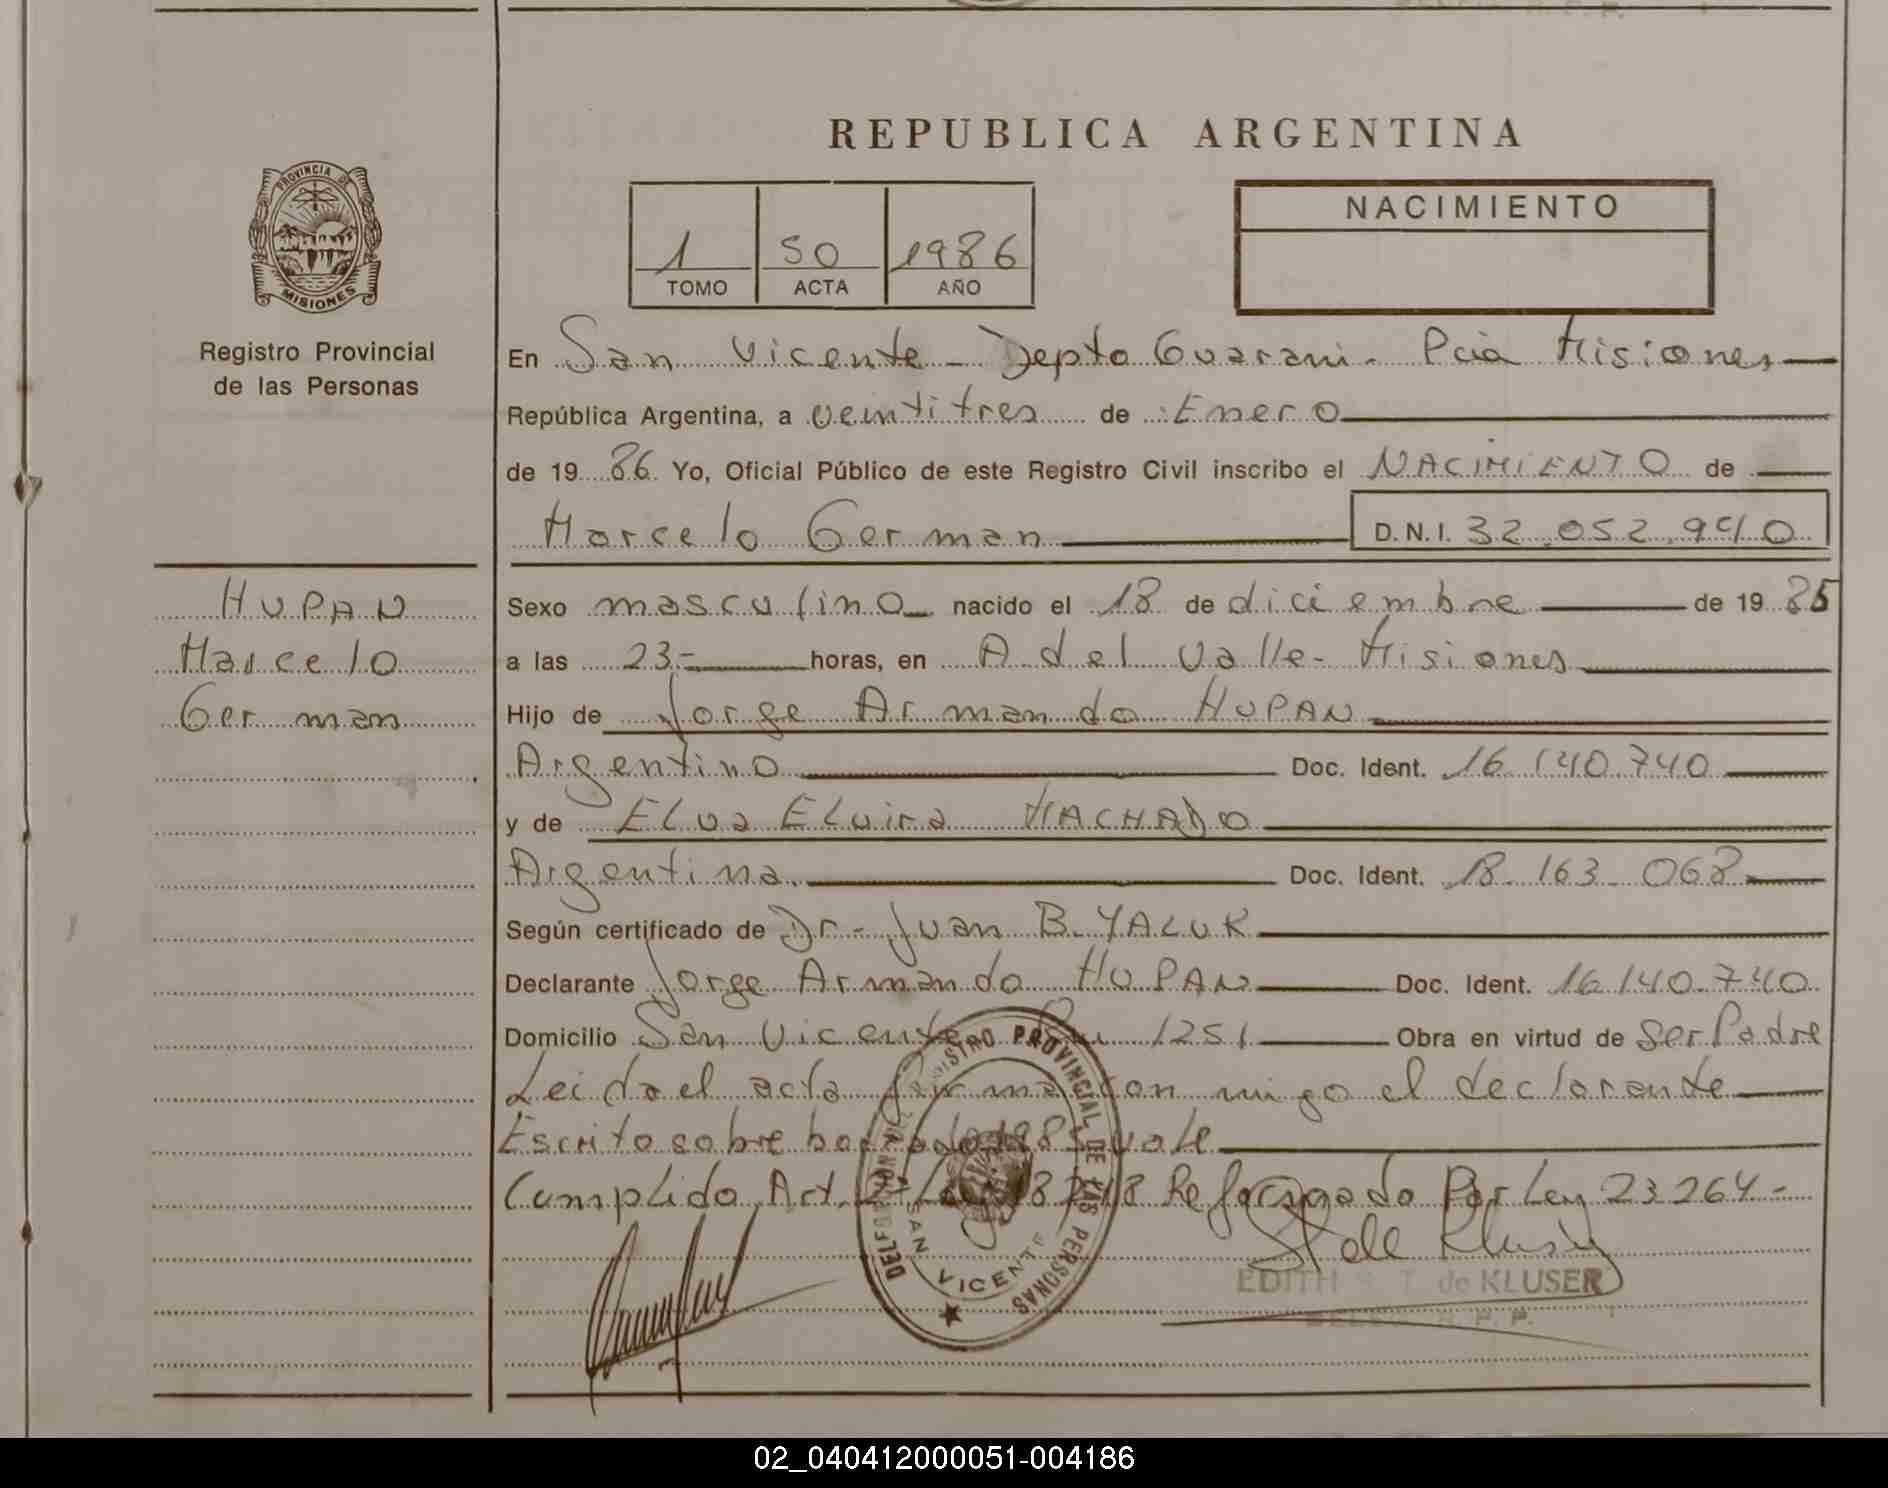 REPUBLICA ARGENTINA
PROVINCIA DE
MISIONES
Registro Provincial
de las Personas
1 50 1986
TOMO ACTA AÑO
NACIMIENTO
En San Vicente - Depto Guarani - Pcia Misiones
República Argentina, a veintitres de Enero
de 19 86 Yo, Oficial Público de este Registro Civil inscribo el NACIMIENTO de
Marcelo German D.N.I. 32.052.940
HUPAN
Marcelo
German
Sexo masculino nacido el 18 de diciembre de 19 85
a las 23- horas, en A del Valle - Misiones
Hijo de Jorge Armando HUPAN
Argentino Doc. Ident. 16.140.740
y de ELva ELvira MACHADO
Argentina. Doc. Ident. 18.163.068
Según certificado de Dr- Juan B. YALUK
Declarante Jorge Armando HUPAN Doc. Ident. 16.140.740
Domicilio San Vicente 1251 Obra en virtud de ser Padre
Leida el acta firma con migo el declarante
Escrito sobre borrado 1985 vale
Cumplido Art. Ley 18248 Reformado Por Ley 23264-
REGISTRO PROVINCIAL DE LAS PERSONAS
SAN VICENTE
EDITH S. T. de KLUSER
R. P. P.
02_040412000051-004186